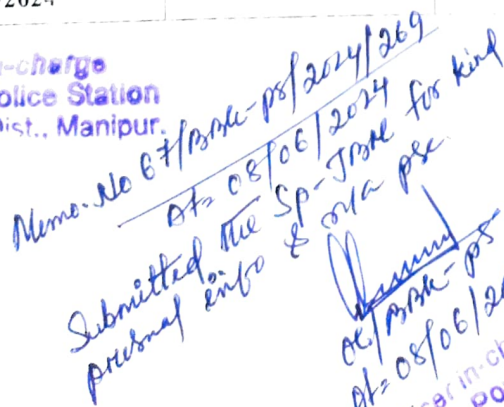 2024
-charge
olice Station
ist., Manipur.
Memo. No 67/BBK-PS/2024/269
Dt= 08/06/2024
Submitted the SP-JBM for kind
info & n/a pse.
OC/BBK-PS
Dt= 08/06/2
er in-ch
Po